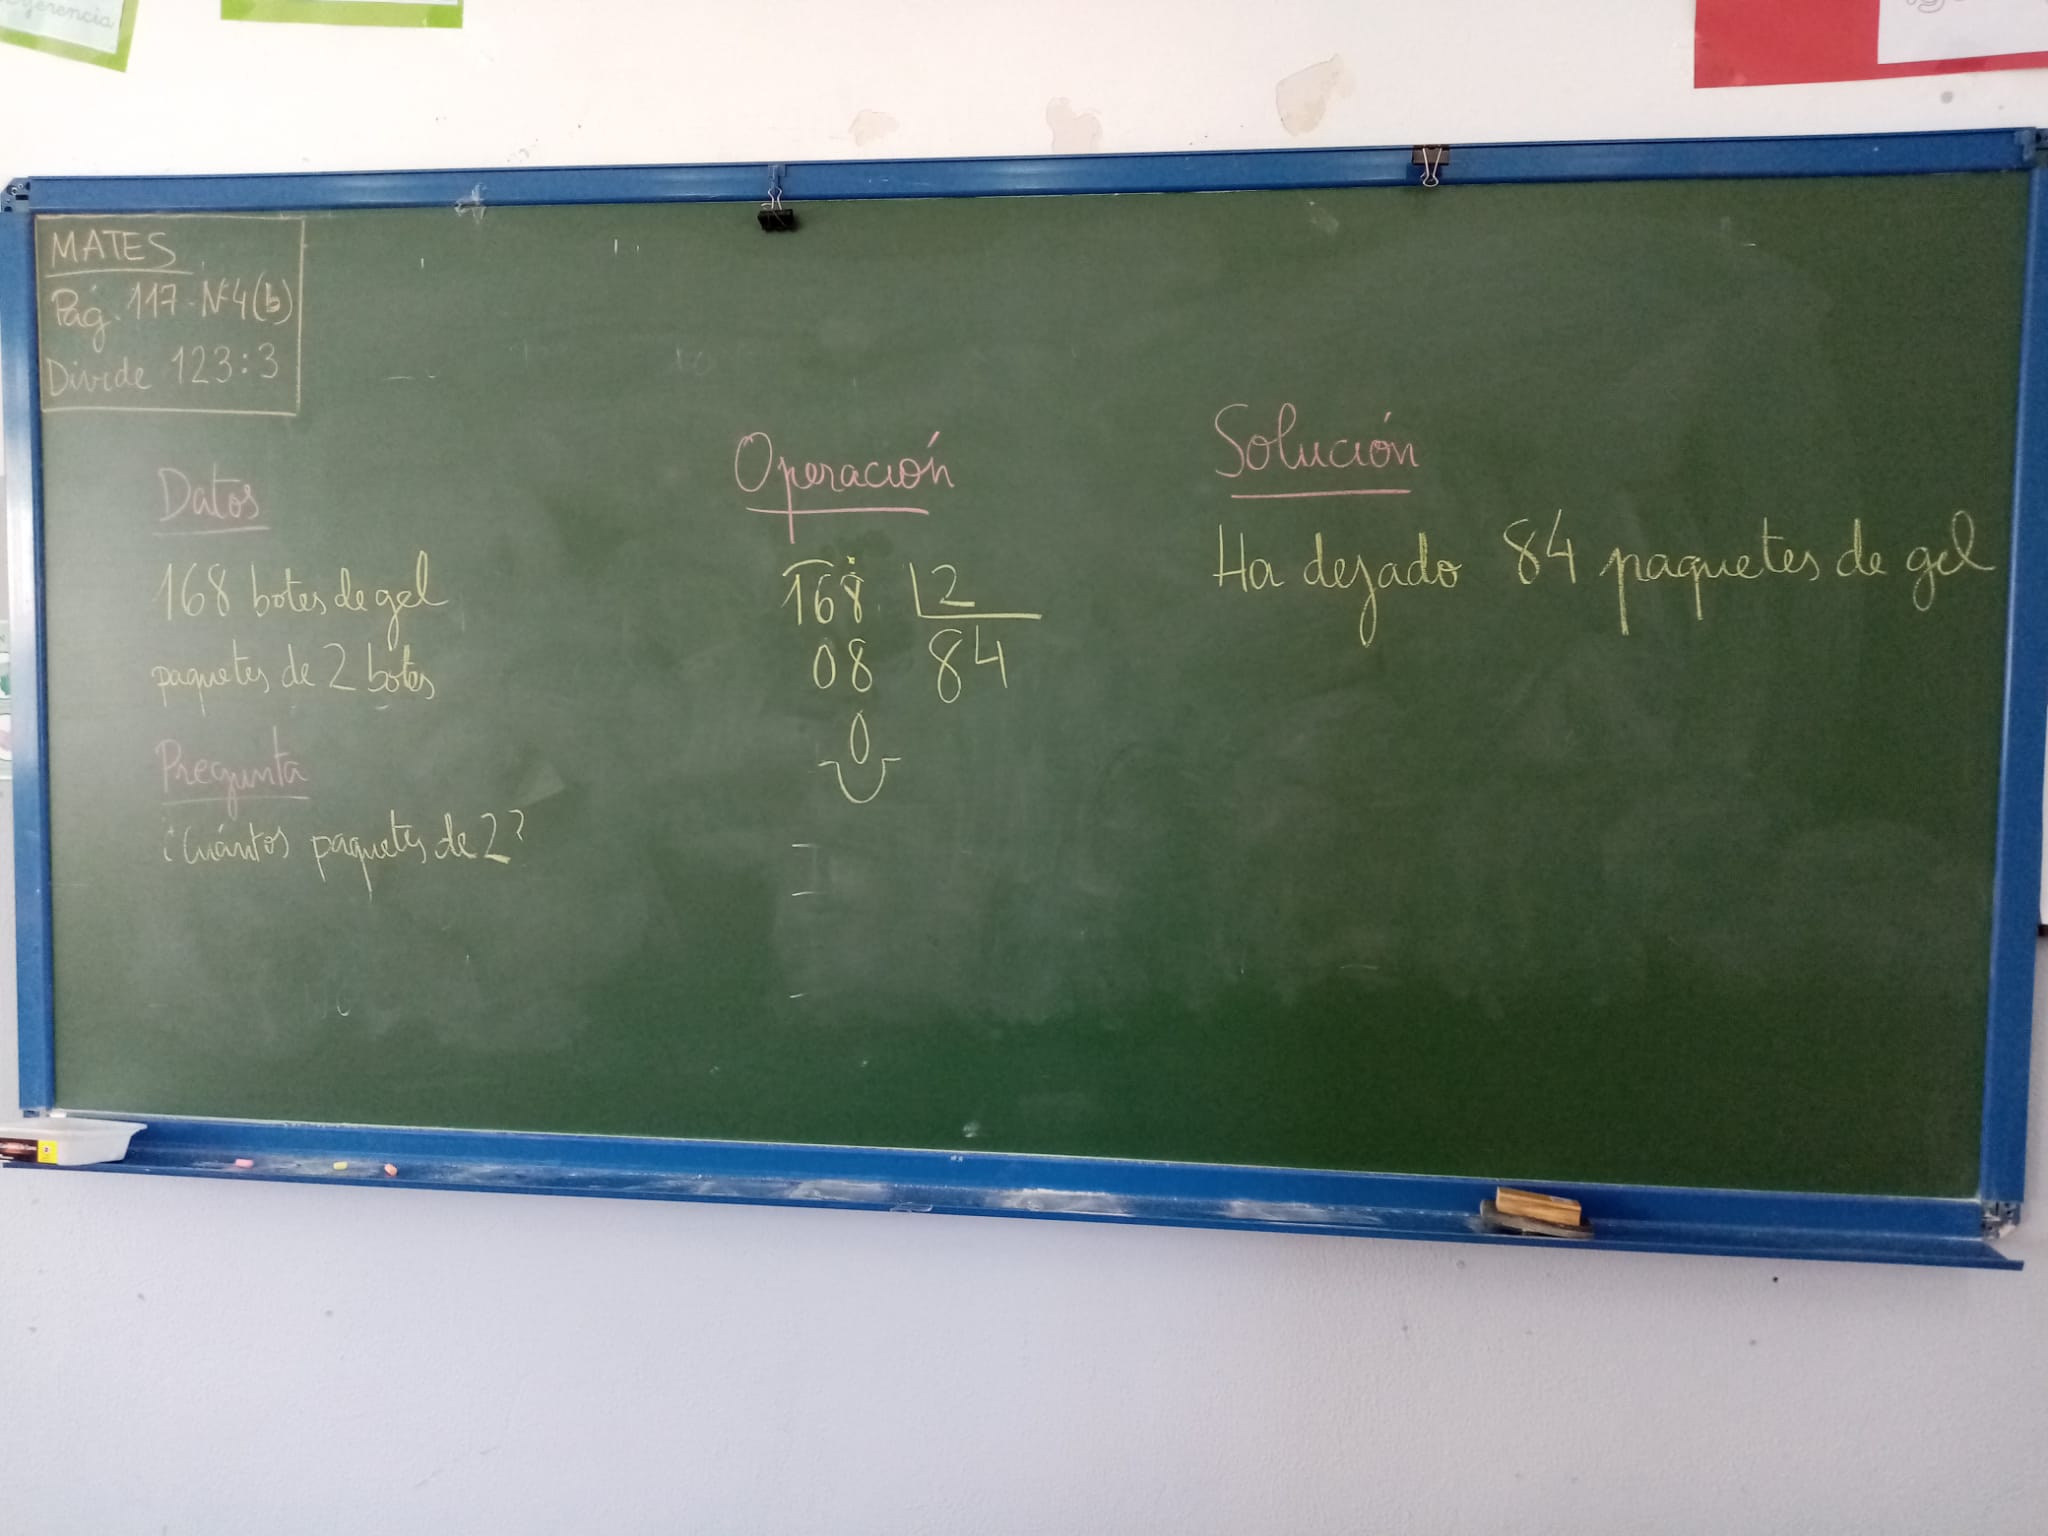 MATES
Pág. 117-Nº4(b)
Divide 123:3
Datos
168 botes de gel
paquetes de 2 botes
Pregunta
¿Cuántos paquetes de 2?
Operación
168 2
08 84
0
Solución
Ha dejado 84 paquetes de gel